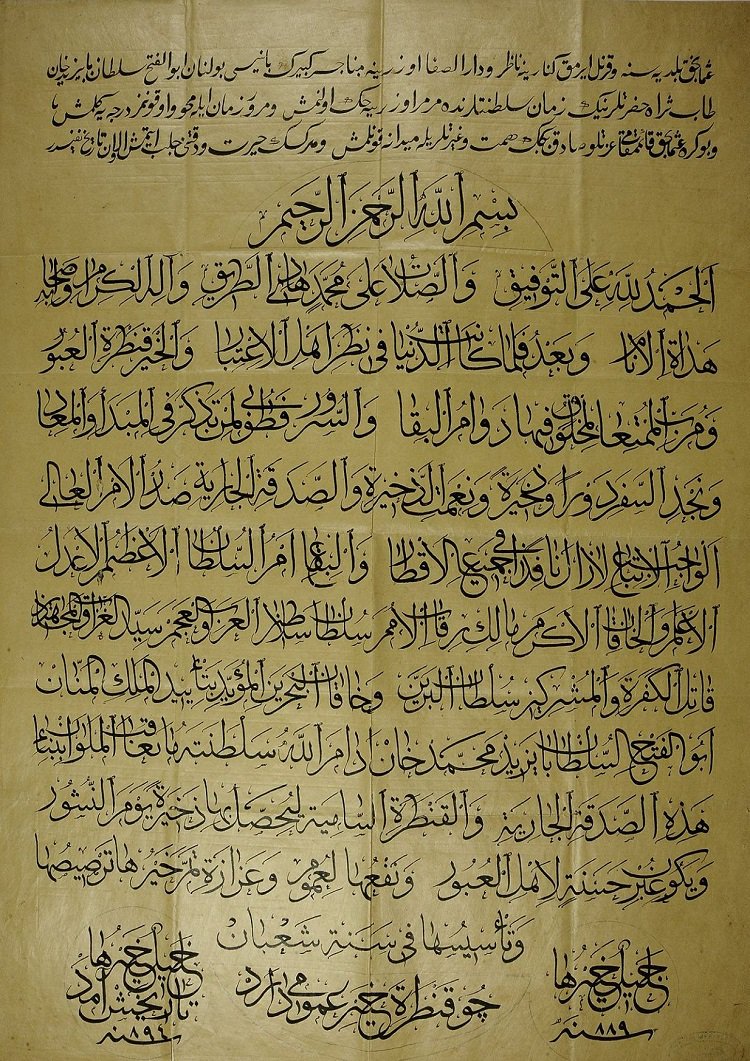 عثمانجق بلدیه سنه و قزل ایرمق کنارینه ناظر و دار الصفا اوزرینه بنا جسر کبیرك بانیسی بولنان ابو الفتح سلطان بایزید خان
طاب ثراه حضرتلرینك زمان سلطنتلرنده مرمر اوزرینه حك اولنمش و مرور زمان ایله محو اوقونمز درجه یه کلمش
و بو کره عثمانجق قائمقامی عزتلو صادق بكك همت و غیرتلریله میدانه قونلمش و مدرکسك حیرت و دقتی جلب ایتمش الاون تاریخ
بسم الله الرحمن الرحيم
الحمد لله على التوفيق والصلات على محمد هادى الطريق وآله الكرام وصحابه
هداة الانام وبعد فلما كانت الدنيا فى نظر اهل الاعتبار والخير قنطرة العبور
وم الممتعا المخلوق فيها دوام البقا والسرور فطوبى لمن تذكر فى المبدأ والمعاد
السفر دورا وذخيرة ونعمت الذخيرة والصدقة الجارية صدر الامر العالى
الواجب الاتباع لازال نافذا فى جميع الاقطار والبقاع امر السلطان الاعظم الاعدل
الاعلم والخاقان الاكرم مالك رقاب الامم سلطان سلاطين العرب والعجم سيد الغزاة والمجاهدين
قاتل الكفرة والمشركين سلطان البرين وخاقان البحرين المؤيد بتأييد الملك المنان
ابو الفتح السلطان بايزيد محمد خان ادام الله سلطنته ما تعاقب الملوان ابتناء
هذه الصدقة الجارية والقنطرة السامية ليحصل بها ذخيرة يوم النشور
ويكون حسنة لاهل العبور ونفعها لعموم وغزارة ثم خيرها ترصيصها
وتأسيسها فى سنة شعبان
جميل خيرها
سنه ٨٨٩
چو قنطرة خير عمومى دارد
جميل خيرها
تاريخش آمد
سنه ٨٩٤